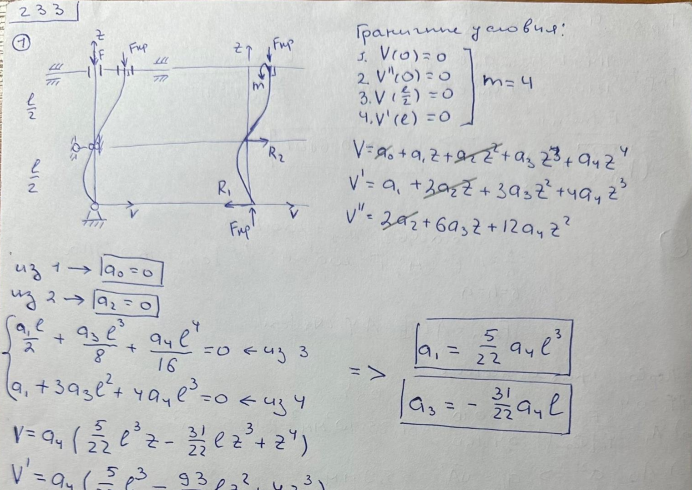 233
①
z
F
Fкр
l/2
l/2
v
z
Fкр
M
R₂
R₁
Fкр
v
Граничные условия:
1. V(0)=0
2. V''(0)=0
3. V(l/2)=0
4. V'(l)=0
m=4
V=a₀+a₁z+a₂z²+a₃z³+a₄z⁴
V'=a₁+2a₂z+3a₃z²+4a₄z³
V''=2a₂+6a₃z+12a₄z²
из 1 → a₀=0
из 2 → a₂=0
a₁l/2 + a₃l³/8 + a₄l⁴/16 =0 ← из 3
a₁+3a₃l²+4a₄l³=0 ← из 4
=> a₁ = 5/22 a₄l³
a₃ = - 31/22 a₄l
V=a₄(5/22 l³z - 31/22 lz³ + z⁴)
V'=a₄(5/22 l³ - 93/22 lz² + 4z³)